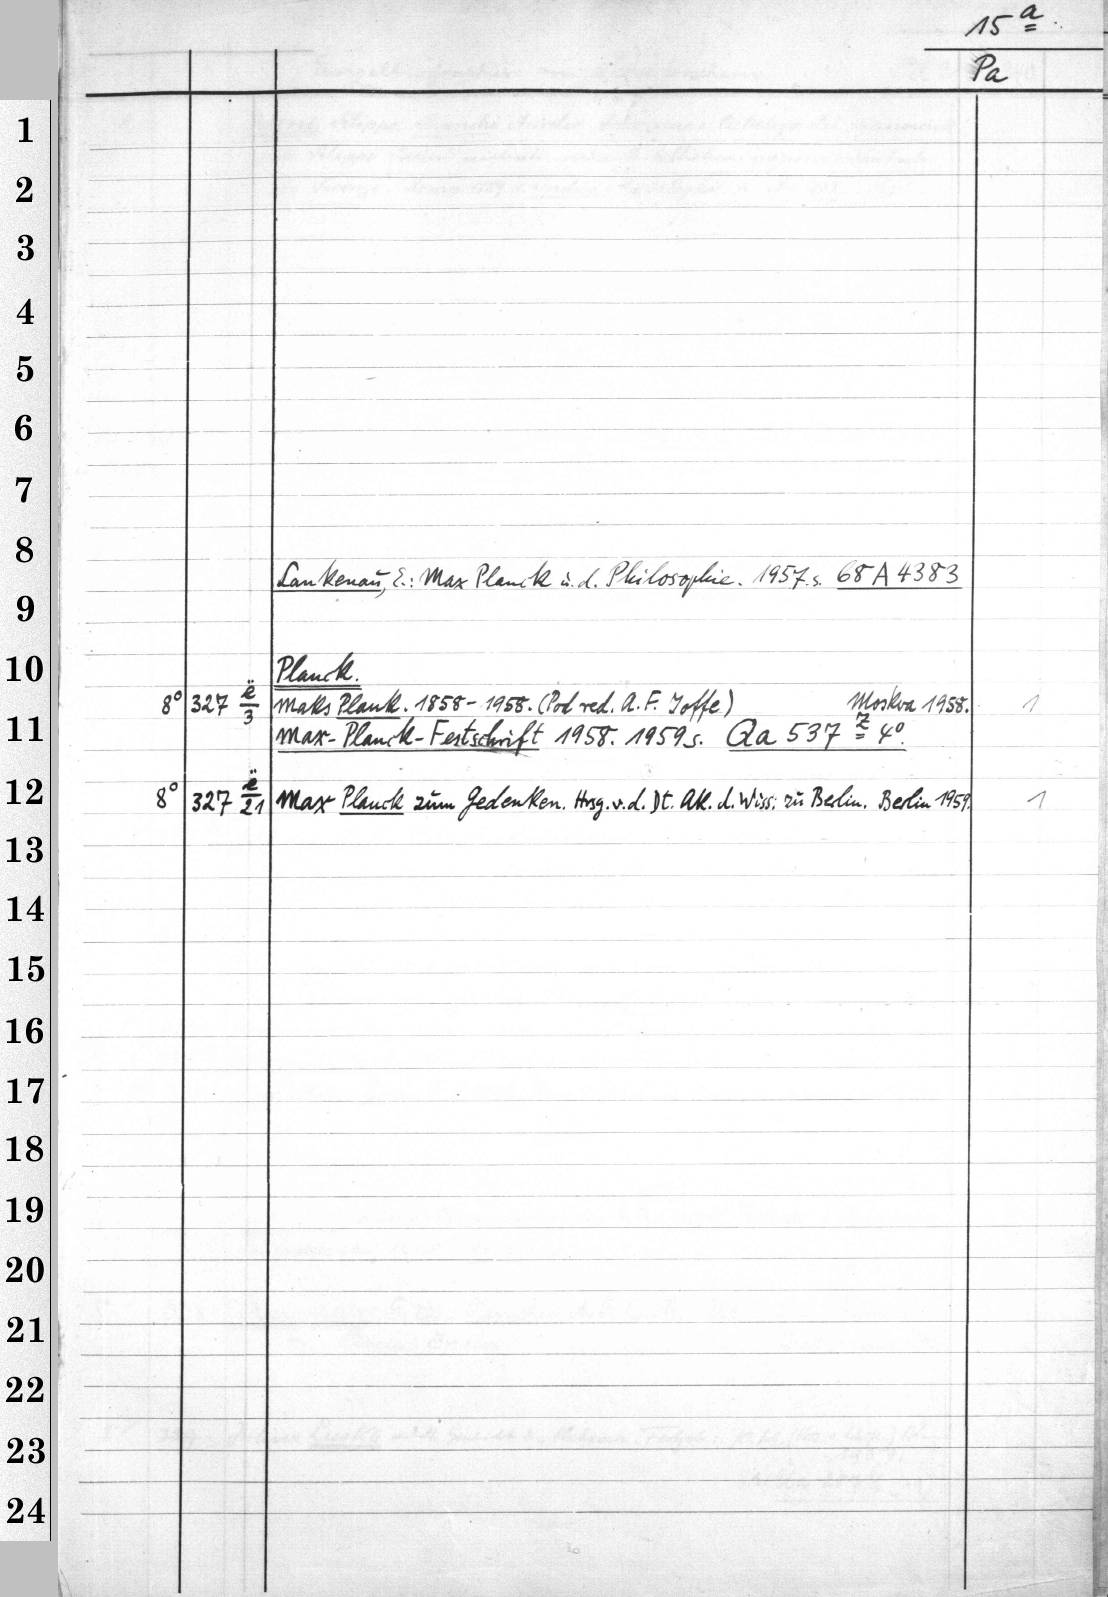 15 a
Pa
1
2
3
4
5
6
7
8
Lankenau, E.: Max Planck u. d. Philosophie. 1957. s. 68 A 4383
9
10
Planck.
8° 327 ë/3 Maks Plank. 1858-1958. (Pod red. A. F. Joffe) Moskva 1958. 1
11
Max-Planck-Festschrift 1958. 1959 s. Qa 537 z 4°.
12
8° 327 ë/21 Max Planck zum Gedenken. Hrsg. v. d. Dt. Ak. d. Wiss. zu Berlin. Berlin 1959. 1
13
14
15
16
17
18
19
20
21
22
23
24